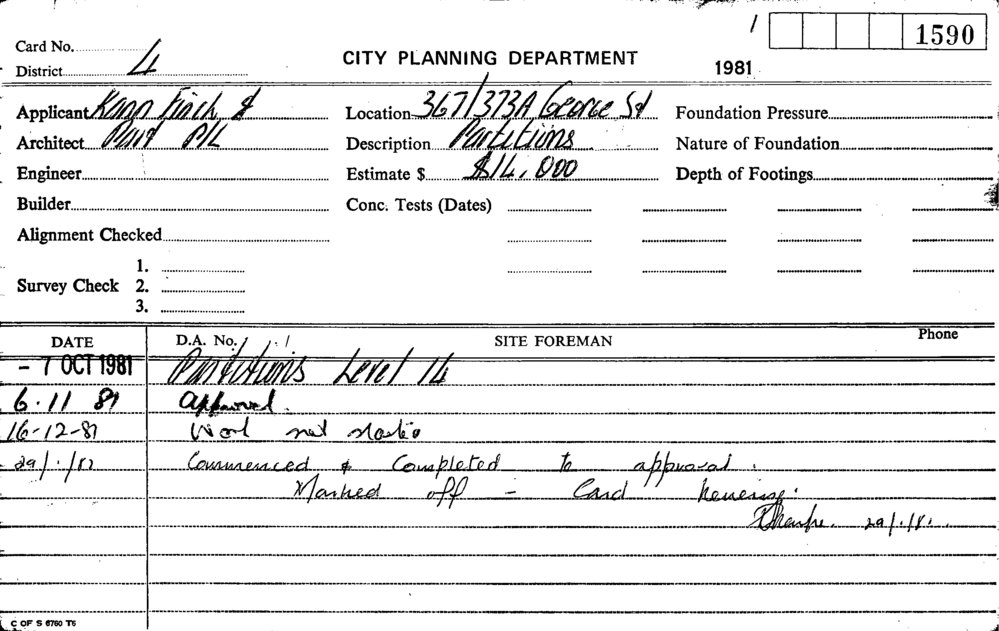 1590
Card No. 4
CITY PLANNING DEPARTMENT
District
1981
Applicant Kann Finch &
Location 367/373A George St
Foundation Pressure
Architect P/L
Description Partitions
Nature of Foundation
Engineer
Estimate $ $14,000
Depth of Footings
Builder
Conc. Tests (Dates)
Alignment Checked
1.
Survey Check 2.
3.
DATE D.A. No. SITE FOREMAN Phone
- 7 OCT 1981 Partitions Level 14
6.11 81 Approved.
16-12-81 Work not
29/./82 Commenced & Completed to approval.
Marked off - Card
29/./8
C OF S 6760 T6